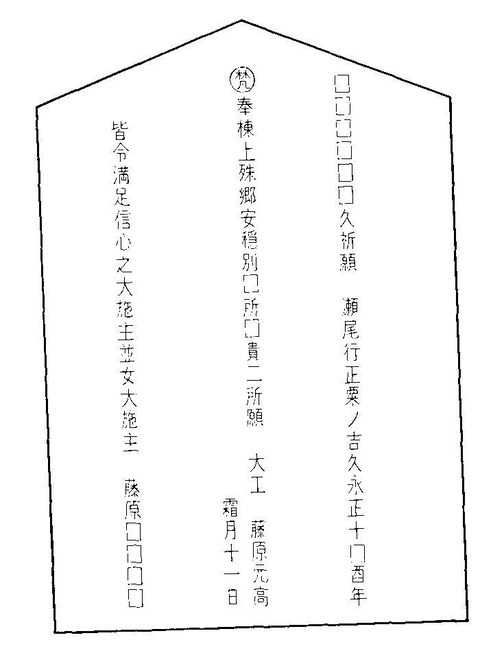 □□□□□□久祈願　瀬尾行正粟ノ吉久永正十□酉年
梵奉棟上殊郷安穏別□所□貴二所願　大工　藤原元高
霜月十一日
皆令満足信心之大施主並女大施主　藤原□□□□